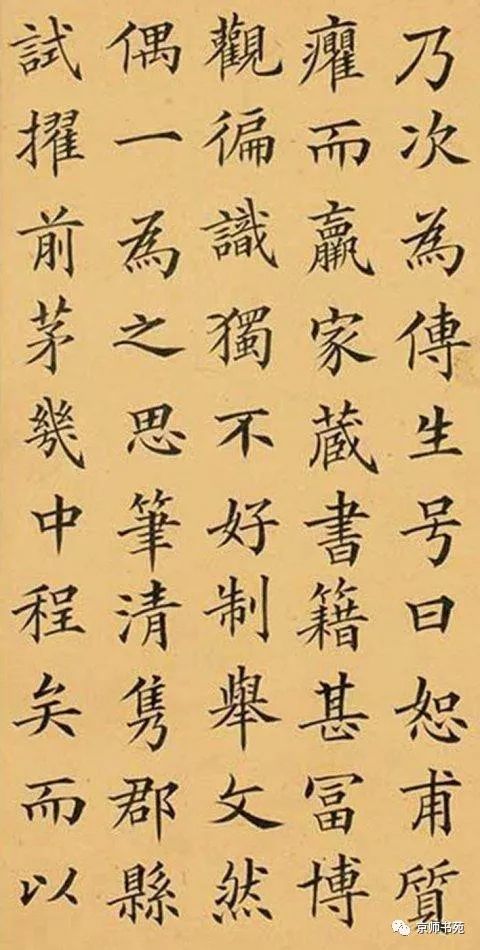 乃次為傳生号曰恕甫質
癯而羸家蔵書籍甚冨博
觀徧識獨不好制舉文然
偶一為之思筆清隽郡縣
試擢前茅幾中程矣而以
京师书苑